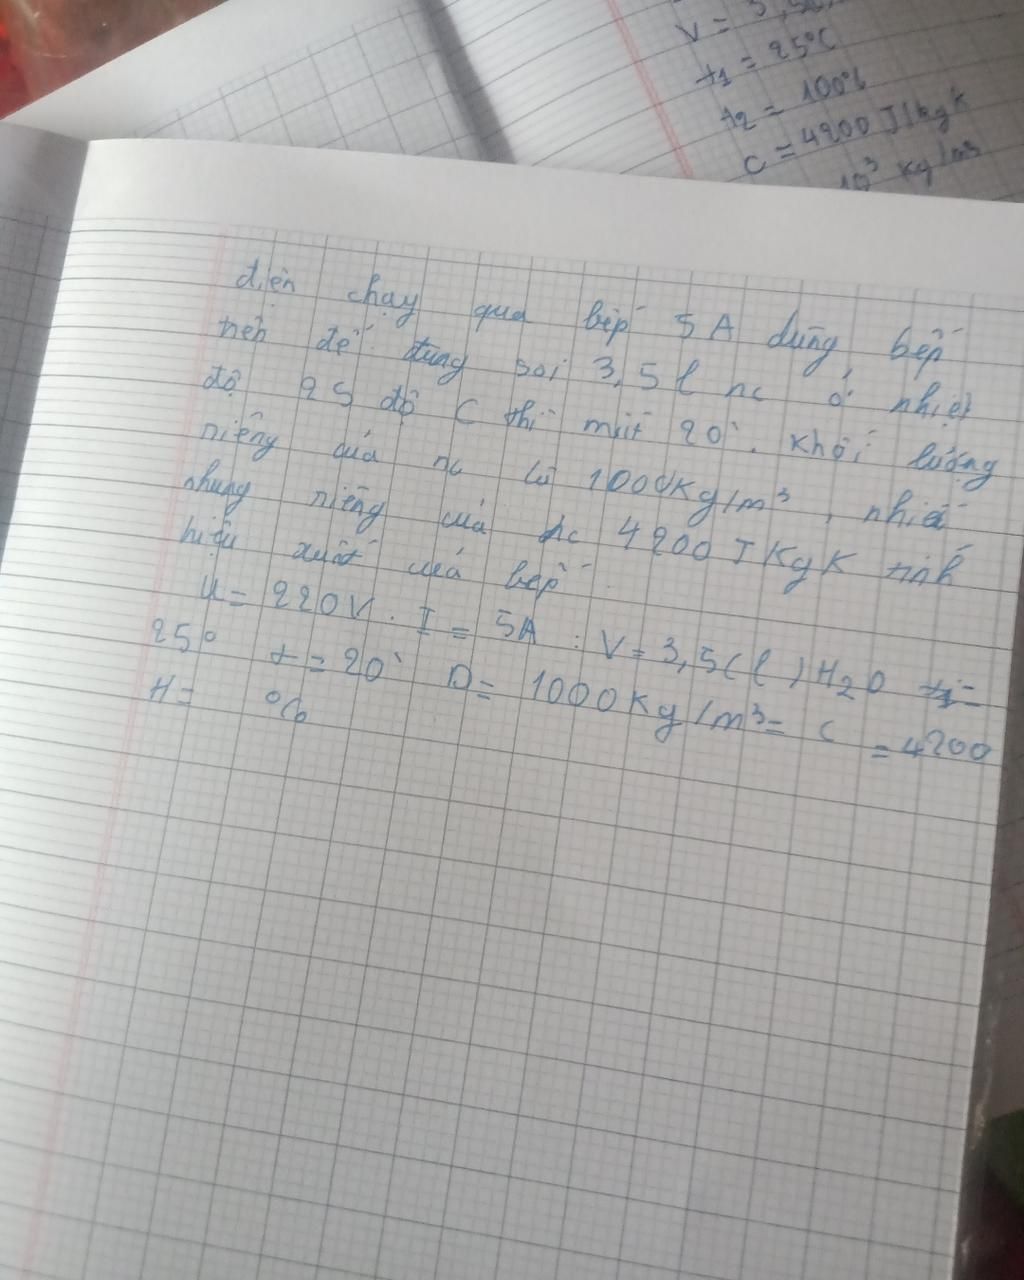 V = 3,5
t1 = 25°C
t2 = 100°C
C = 4200 J/kgK
10³ kg/m3
điện chạy qua bếp 5A dùng bếp
trên để đung soi 3,5l nc ở nhiệt
độ 25 độ C thì mất 20'. Khối lượng
riêng của nc là 1000kg/m³, nhiệt
nhung riêng của nc 4200 JKgK tính
hiệu xuất của bếp.
U = 220V. I = 5A : V = 3,5(l) H2O
25° t = 20' D = 1000Kg/m³ = C = 4200
H = %